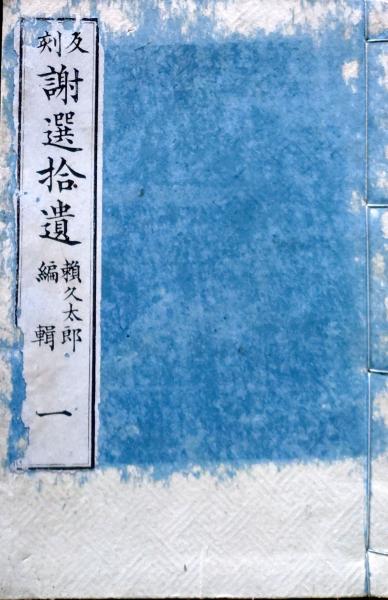 反刻
謝選拾遺
頼久太郎
編輯
一